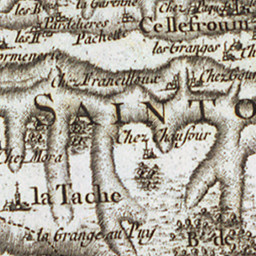 la Garenne
Chez Pa
les B
Pardelieres
Cellefroum
Pachette
les Granges
ormenerie
Chez Francillaux
Chez Gour
SAINTO
Chez Chaufour
Chez Mora
la Tache
la Grange au Puy
B. de